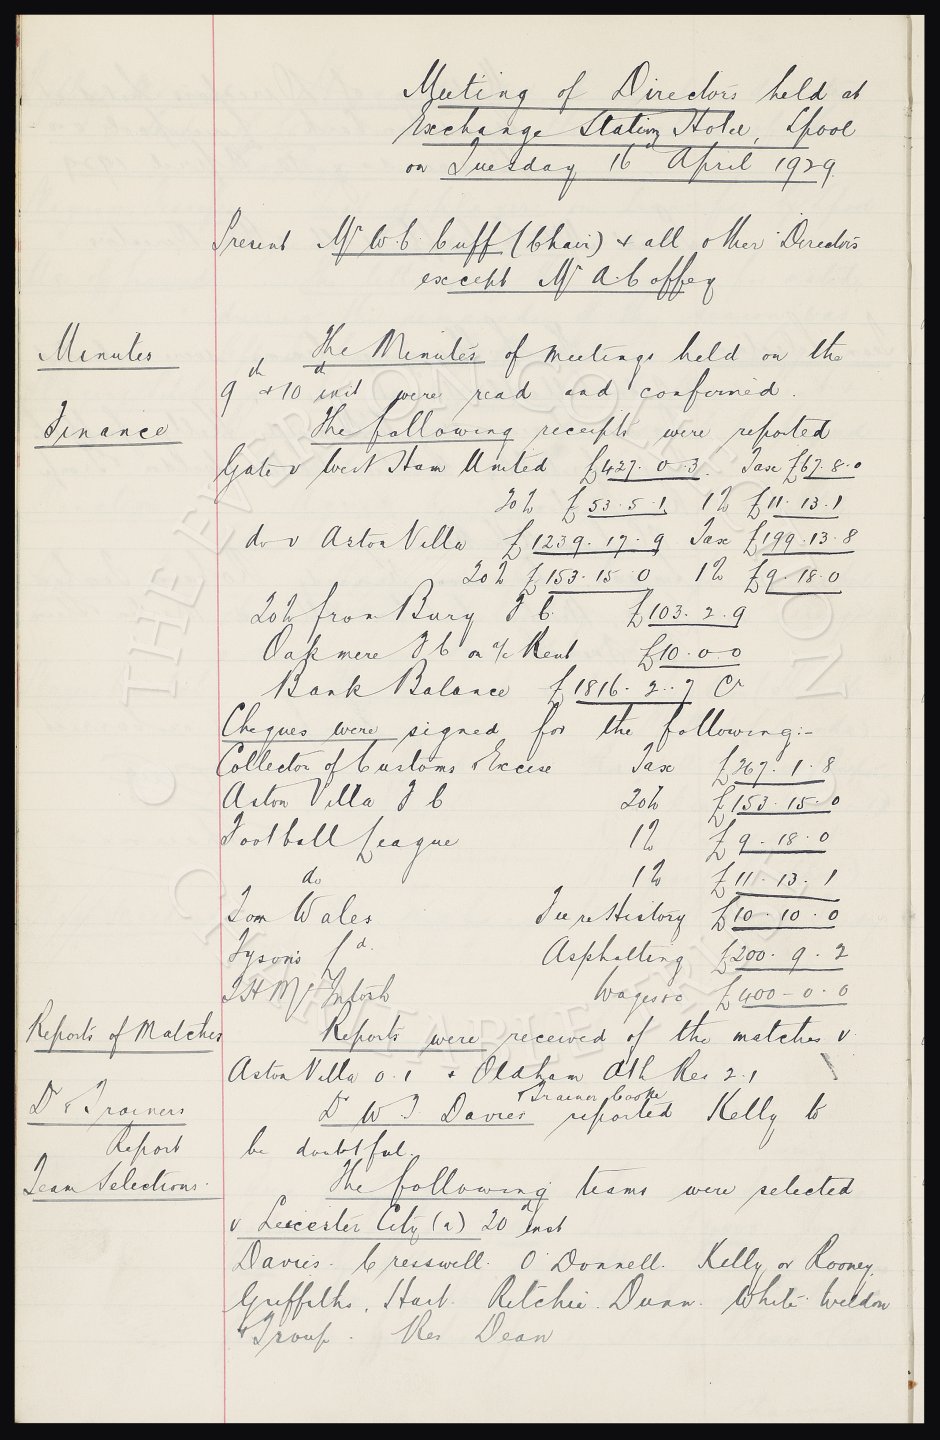 Meeting of Directors held at
Exchange Station Hotel, Lpool
on Tuesday 16 April 1929
Present Mr W.C. Cuff (Chair) & all other Directors
except Mr A. Coffey
Minutes
The Minutes of meetings held on the
9th & 10th inst were read and confirmed.
Finance
The following receipts were reported
Gate v West Ham United £427.0.3. Tax £67.8.0
20% £53.5.1. 1% £11.13.1
do v Aston Villa £1239.17.9 Tax £199.13.8
20% £153.15.0 1% £9.18.0
20% from Bury F C £103.2.9
Oakmere F C on a/c Rent £10.0.0
Bank Balance £1816.2.7 Cr
Cheques were signed for the following:-
Collector of Customs & Excise Tax £267.1.8
Aston Villa F C 20% £153.15.0
Football League 1% £9.18.0
do 1% £11.13.1
Tom Wales Fee re History £10.10.0
Tysons Ld. Asphalting £200.9.2
T H McIntosh Wages &c £400-0.0
Reports of Matches
Reports were received of the matches v
Aston Villa 0.1 & Oldham Ath Res 2.1
Dr & Trainers
Report
& Trainer Cooke
Dr W J Davies reported Kelly to
be doubtful.
Team Selections.
The following teams were selected
v Leicester City (a) 20th inst
Davies. Cresswell. O'Donnell. Kelly or Rooney.
Griffiths, Hart. Ritchie. Dunn. White. Weldon
& Troup. Res Dean
© THE EVERTON COLLECTION
CHARITABLE TRUST